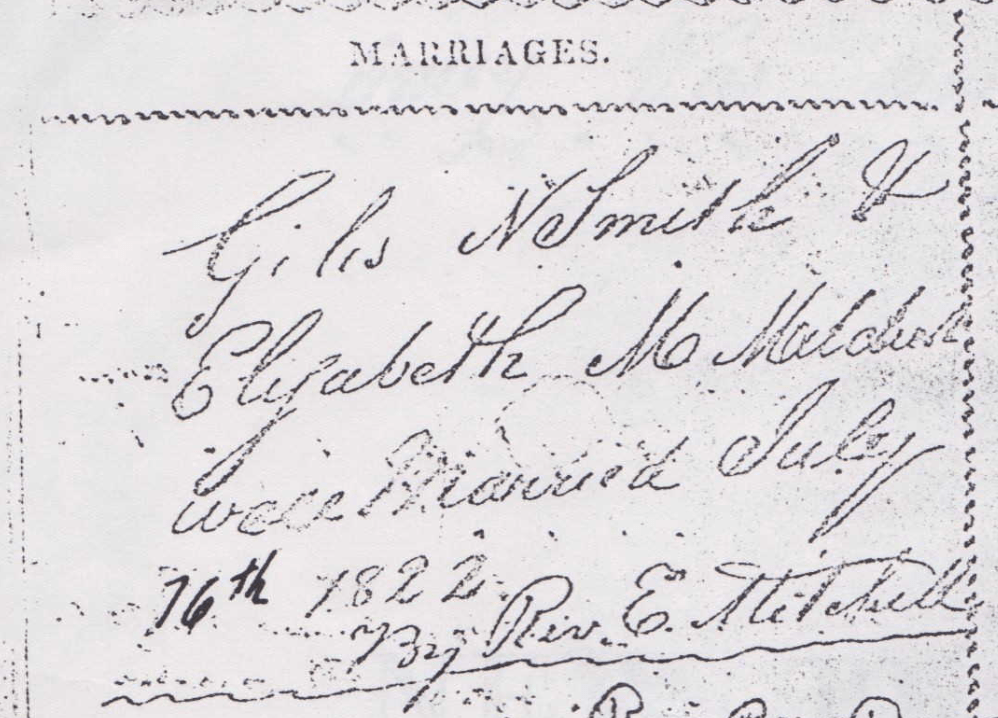 MARRIAGES.
Giles N Smith &
Elizabeth M
were Married July
16th 1822
By Rev. E. Mitchell